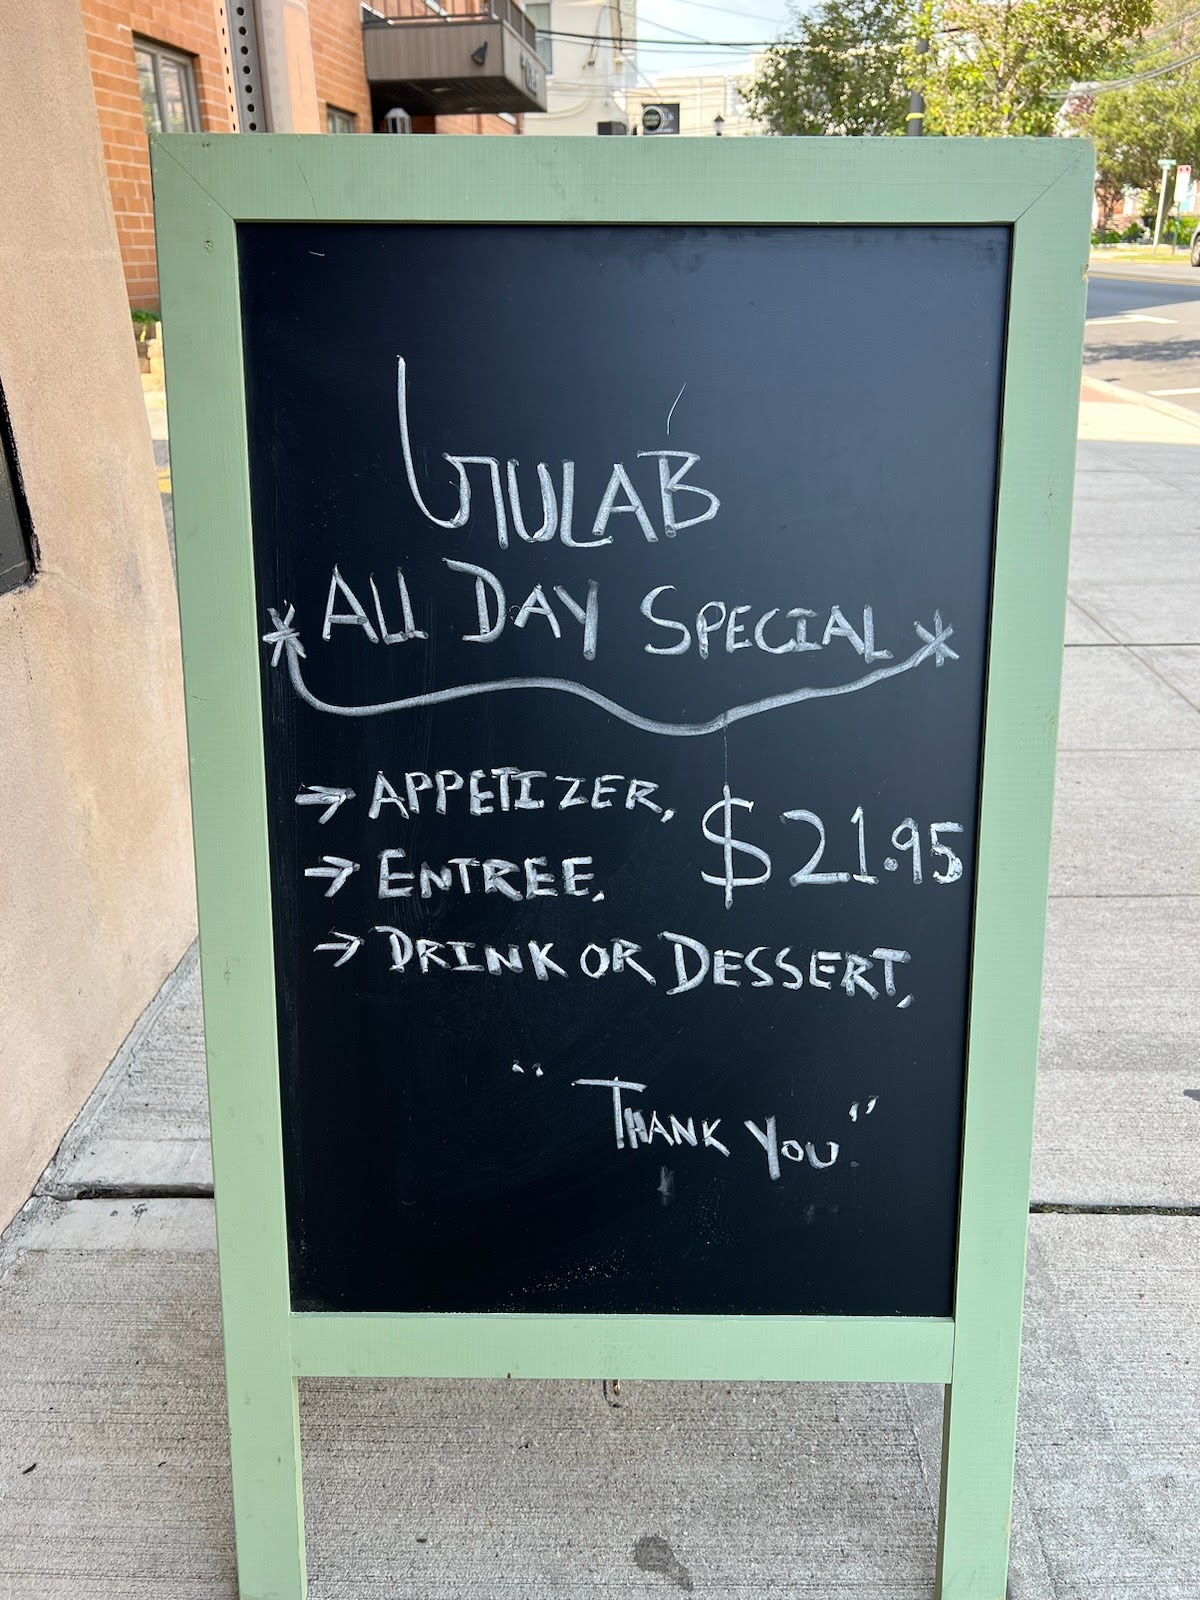 GULAB
* ALL DAY SPECIAL *
→ APPETIZER,
$21.95
→ ENTREE,
→ DRINK OR DESSERT,
"THANK YOU"